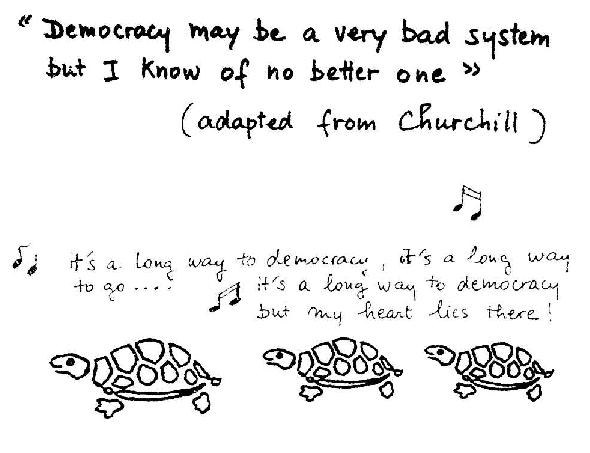 “ Democracy may be a very bad system
but I know of no better one »
(adapted from Churchill)
it's a long way to democracy, it's a long way
to go....
it's a long way to democracy
but my heart lies there!